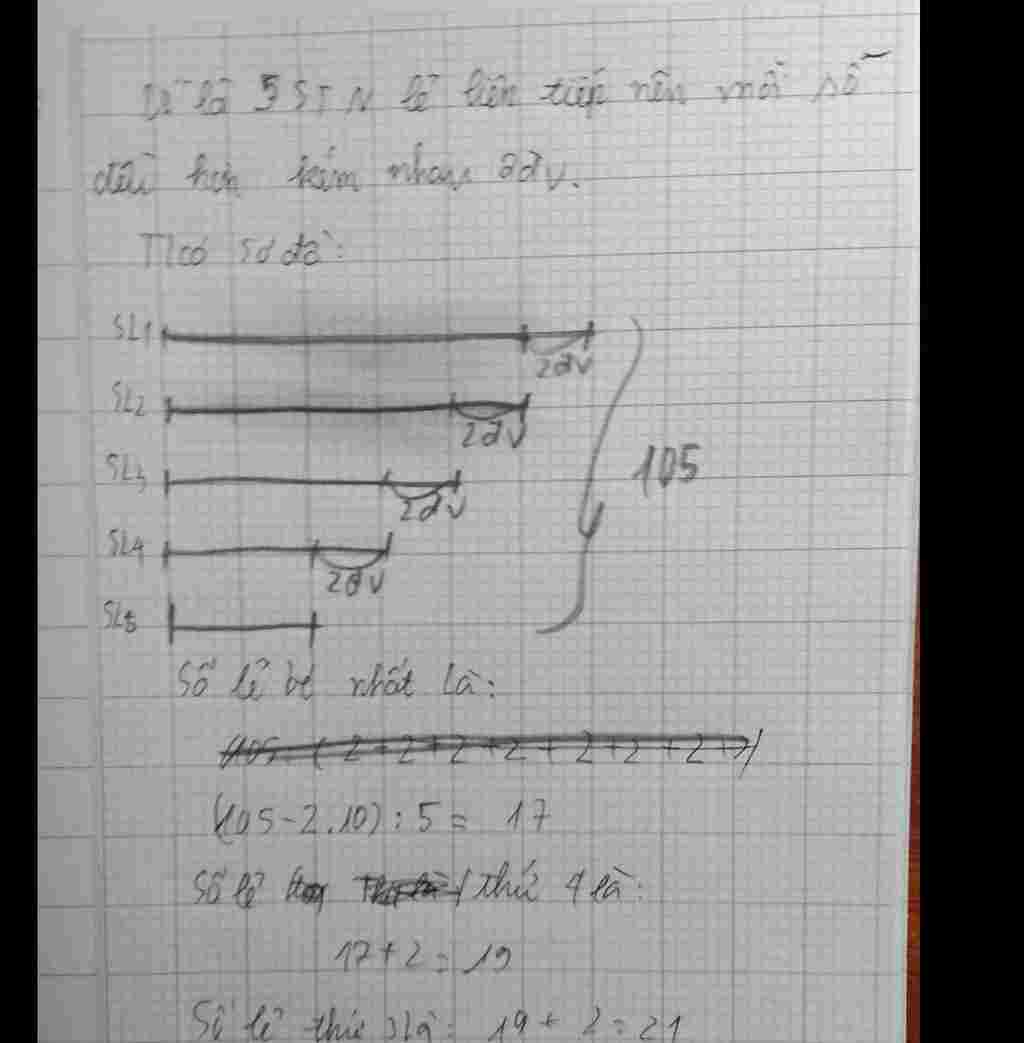 Vì là 5 STN lẻ liên tiếp nên mỗi số
đều hơn kém nhau 2đv.
Ta có sơ đồ:
SL1
2đv
SL2
2đv
105
SL3
2đv
SL4
2đv
SL5
Số lẻ bé nhất là:
(105 - ( 2 + 2 + 2 + 2 + 2 + 2 + 2 +
(105 - 2.10) : 5 = 17
Số lẻ thứ 4 là:
17 + 2 = 19
Số lẻ thứ 3 là: 19 + 2 = 21